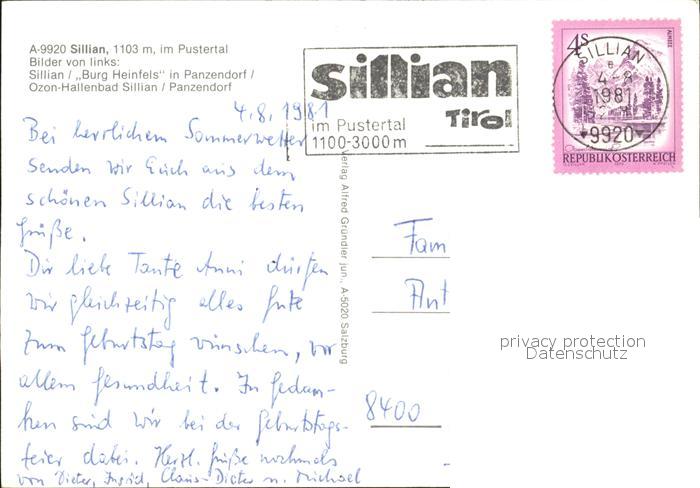 A-9920 Sillian, 1103 m, im Pustertal
Bilder von links:
Sillian / „Burg Heinfels" in Panzendorf /
Ozon-Hallenbad Sillian / Panzendorf
4.8.1981
Bei herrlichem Sommerwetter
senden wir Euch aus dem
schönen Sillian die besten
Grüße.
Dir liebe Tante Anni dürfen
wir gleichzeitig alles Gute
zum Geburtstag wünschen, vor
allem Gesundheit. In Gedan-
ken sind wir bei der Geburtstags-
feier dabei. Herzl. Grüße nochmals
von Dieter, Ingrid, Claus-Dieter u. Michael
sillian
Tirol
im Pustertal
1100-3000m
4S
SILLIAN
4-8
1981
9920
REPUBLIK ÖSTERREICH
Verlag Alfred Gründler jun., A-5020 Salzburg
Fam
Ant
8400
privacy protection
Datenschutz